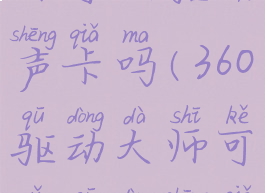 shēng qiǎ ma
声卡吗(360
qū dòng dà shī kě
驱动大师可